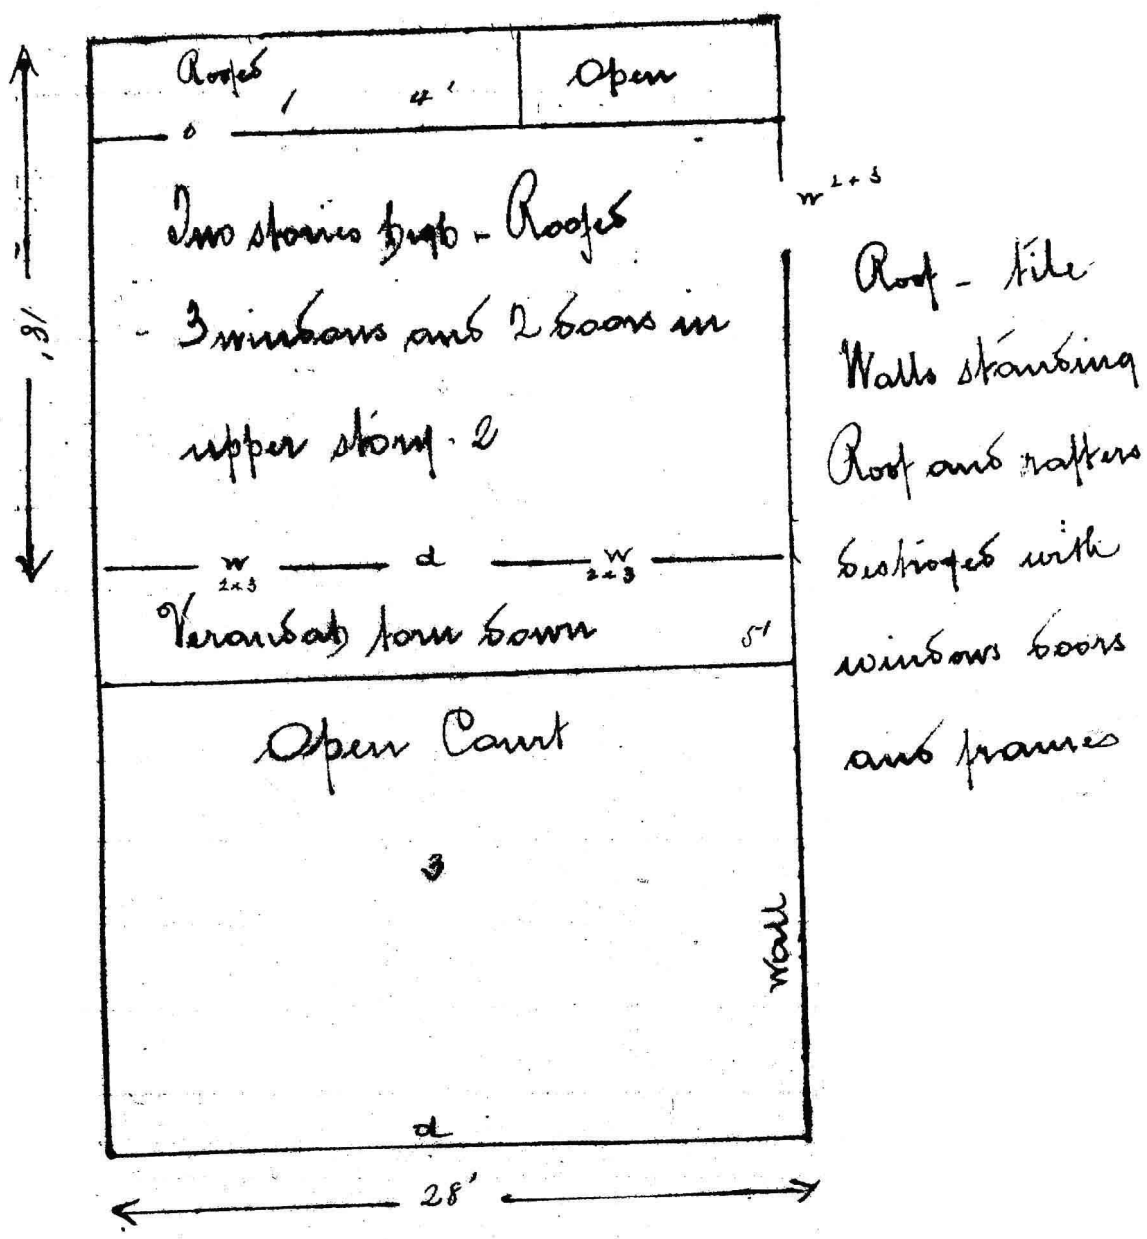 Roofed
Open
1
4'
d
Two stories high - Roofed
3 windows and 2 doors in
upper story. 2
18'
w 2+3
w
2x3
d
w
2x3
Verandah torn down
5'
Open Court
3
Wall
d
28'
Roof - tile
Walls standing
Roof and rafters
destroyed with
windows doors
and frames